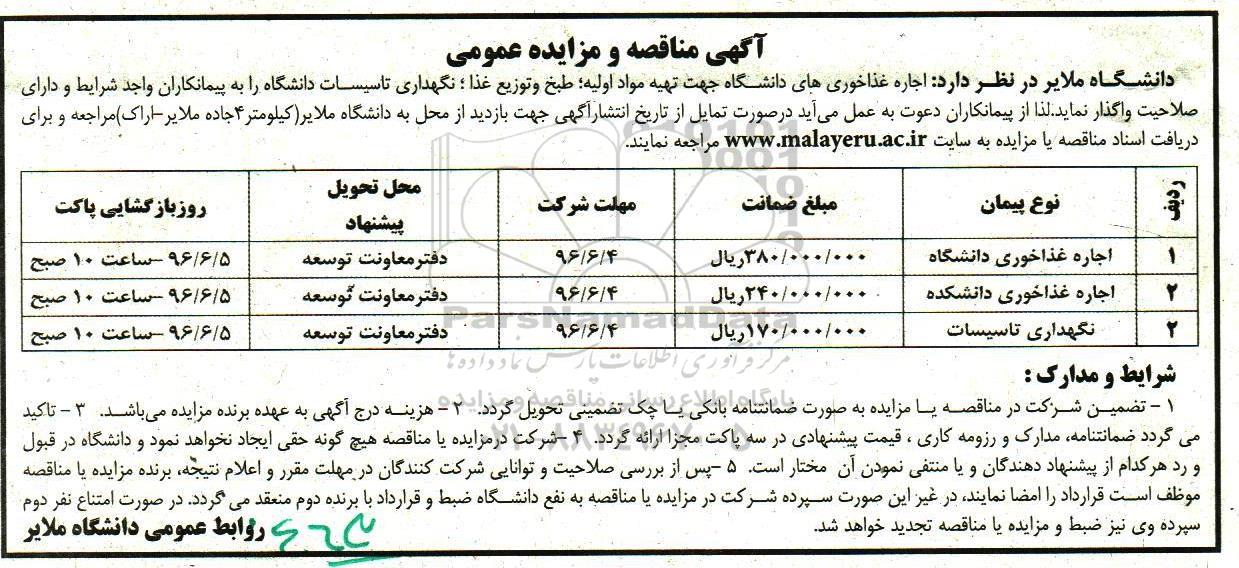 آگهی مناقصه و مزایده عمومی
دانشگاه ملایر در نظر دارد: اجاره غذاخوری های دانشگاه جهت تهیه مواد اولیه؛ طبخ وتوزیع غذا ؛ نگهداری تاسیسات دانشگاه را به پیمانکاران واجد شرایط و دارای
صلاحیت واگذار نماید.لذا از پیمانکاران دعوت به عمل می‌آید درصورت تمایل از تاریخ انتشارآگهی جهت بازدید از محل به دانشگاه ملایر(کیلومتر۴جاده ملایر-اراک)مراجعه و برای
دریافت اسناد مناقصه یا مزایده به سایت www.malayeru.ac.ir مراجعه نمایند.
ردیف نوع پیمان مبلغ ضمانت مهلت شرکت محل تحویل پیشنهاد روزبازگشایی پاکت
۱ اجاره غذاخوری دانشگاه ۳۸۰/۰۰۰/۰۰۰ریال ۹۶/۶/۴ دفترمعاونت توسعه ۹۶/۶/۵ -ساعت ۱۰ صبح
۲ اجاره غذاخوری دانشکده ۲۴۰/۰۰۰/۰۰۰ریال ۹۶/۶/۴ دفترمعاونت توسعه ۹۶/۶/۵ -ساعت ۱۰ صبح
۲ نگهداری تاسیسات ۱۷۰/۰۰۰/۰۰۰ریال ۹۶/۶/۴ دفترمعاونت توسعه ۹۶/۶/۵ -ساعت ۱۰ صبح
ParsNamadData
مرکز فرآوری اطلاعات پارس نماد داده ها
شرایط و مدارک :
پایگاه اطلاع رسانی مناقصه و مزایده
۱ - تضمین شرکت در مناقصه یا مزایده به صورت ضمانتنامه بانکی یا چک تضمینی تحویل گردد. ۲ - هزینه درج آگهی به عهده برنده مزایده می‌باشد. ۳ - تاکید
می گردد ضمانتنامه، مدارک و رزومه کاری ، قیمت پیشنهادی در سه پاکت مجزا ارائه گردد. ۴ -شرکت درمزایده یا مناقصه هیچ گونه حقی ایجاد نخواهد نمود و دانشگاه در قبول
و رد هرکدام از پیشنهاد دهندگان و یا منتفی نمودن آن مختار است. ۵ -پس از بررسی صلاحیت و توانایی شرکت کنندگان در مهلت مقرر و اعلام نتیجه، برنده مزایده یا مناقصه
موظف است قرارداد را امضا نمایند، در غیر این صورت سپرده شرکت در مزایده یا مناقصه به نفع دانشگاه ضبط و قرارداد با برنده دوم منعقد می گردد. در صورت امتناع نفر دوم
سپرده وی نیز ضبط و مزایده یا مناقصه تجدید خواهد شد.
روابط عمومی دانشگاه ملایر